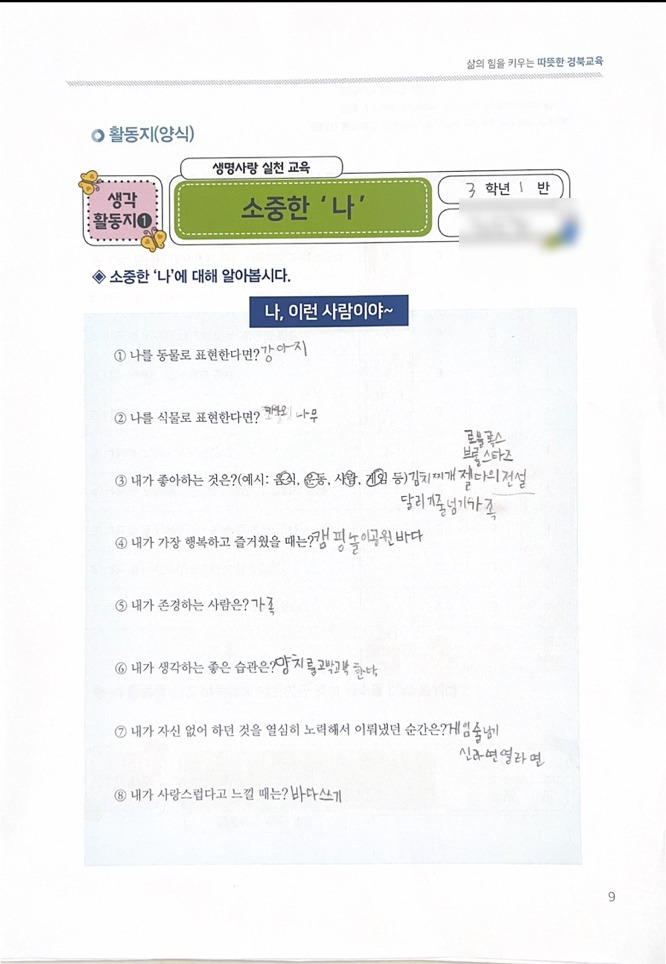 삶의 힘을 키우는 따뜻한 경북교육
활동지(양식)
생명사랑 실천 교육
생각
활동지❶
소중한 '나'
3 학년 1 반
◈ 소중한 '나'에 대해 알아봅시다.
나, 이런 사람이야~
① 나를 동물로 표현한다면? 강아지
② 나를 식물로 표현한다면? 나무
로블록스
브롤스타즈
③ 내가 좋아하는 것은?(예시: 음식, 운동, 사람, 게임 등) 김치찌개 젤다의전설
달리기줄넘기가족
④ 내가 가장 행복하고 즐거웠을 때는? 캠핑놀이공원바다
⑤ 내가 존경하는 사람은? 가족
⑥ 내가 생각하는 좋은 습관은? 양치를꼬박꼬박 한다
⑦ 내가 자신 없어 하던 것을 열심히 노력해서 이뤄냈던 순간은? 게임줄넘기
신라면열라면
⑧ 내가 사랑스럽다고 느낄 때는? 받아쓰기
9